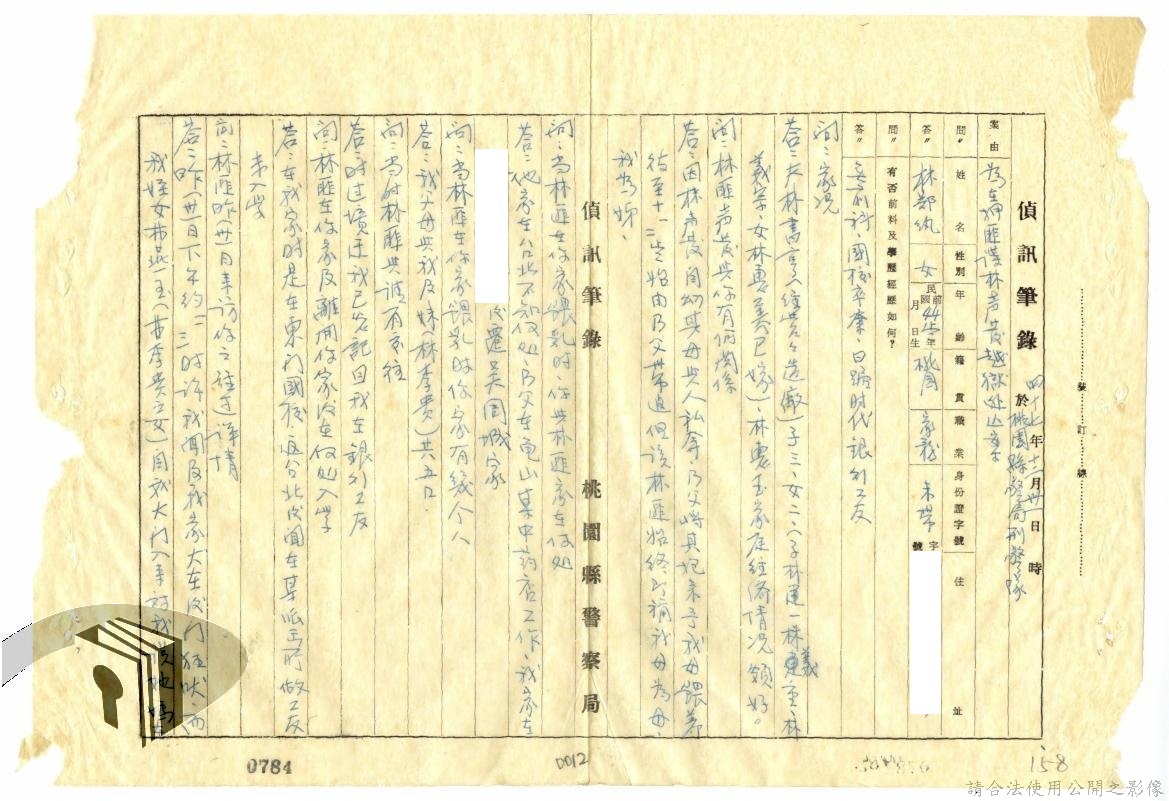 裝訂線
偵訊筆錄 四十七年十二月卅一日 時
於桃園縣警局刑警隊
案由 為在押匪諜林 越獄
問 姓名 性別 年齡 籍貫 職業 身份證字號 住址
答 林 女 民前國 年月日生 桃園 家務 未帶 字號
問 有否前科及學歷經歷如何?
答 無前科、國校卒業、日據時代銀行工友
問:家況
答:夫林書亨(經營 造廠)子三、女二、(子林運一林重義、林
義宗、女林惠美已嫁)、林惠玉家庭經濟情況頗好。
問:林匪 與你有何關係
答:因林 自幼其母與人私奔、乃父將其抱來予我母餵養
後至十一二岁始由乃父帶返但該林匪始終即稱我母為母、
我為姊、
偵訊筆錄 桃園縣警察局
問:當林匪在你家餵乳時、你與林匪家在何處
答:他家在台北不知何處、乃父在龜山某中药店工作、我家在
後遷吳園城家
問:當林匪在你家餵乳時你家有幾个人
答:我父母與我及妹(林李貴)共五口.
問:當时林匪與誰有來往
答:时过境迁我已忘記因我在銀行工友
問:林匪在你家及離開你家後在何处入学
答:在我家时是在東門國校返台北後聞在某派出所做工友
未入学
問:林匪昨(卅)日來訪你之經过詳情
答:昨(卅)日下午約二三时許我聞及我家大在後门狂吠、而
我姪女林燕玉(李貴之女)自我大门入來對我說她媽在
0784
0012
158
請合法使用公開之影像